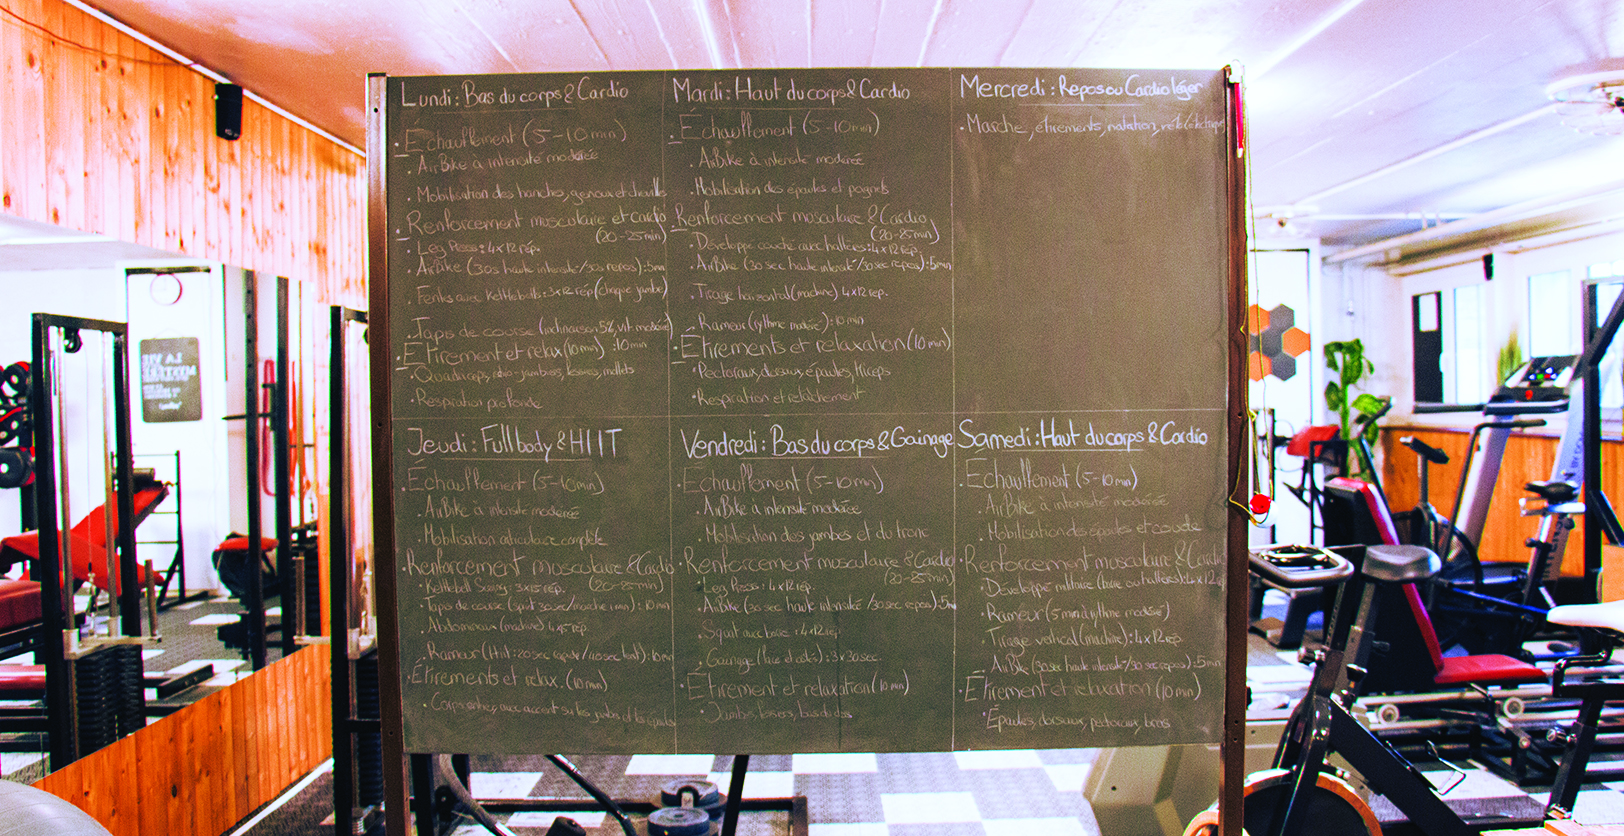 Lundi : Bas du corps & Cardio
. Échauffement (5-10min)
. AirBike à intensité modérée
. Mobilisation des hanches, genoux et
. Renforcement musculaire et cardio
(20-25min)
. Leg Press : 4x12 rép.
. AirBike (30s haute intensité/30s repos) : 5mn
. Fentes avec Kettlebells : 3x12 rép (chaque jambe)
. Tapis de course (inclinaison 5%, vit. modérée)
: 10min
. Étirement et relax (10min)
. Quadriceps, ischio-jambiers, fessiers, mollets
. Respiration profonde
Mardi : Haut du corps & Cardio
. Échauffement (5-10min)
. AirBike à intensité modérée
. Mobilisation des épaules et poignets
. Renforcement musculaire & Cardio
(20-25min)
. Développé couché avec haltères : 4x12 rép.
. AirBike (30 sec haute intensité/30 sec repos) : 5min
. Tirage horizontal (machine) 4x12 rép.
. Rameur (rythme modéré) : 10 min
. Étirements et relaxation (10min)
. Pectoraux, dorsaux, épaules, triceps
. Respiration et relâchement
Mercredi : Repos ou Cardio léger
. Marche, étirements, natation, vélo (électrique
Jeudi : Full body & HIIT
. Échauffement (5-10min)
. AirBike à intensité modérée
. Mobilisation articulaire complète
. Renforcement musculaire & Cardio
(20-25min)
. Kettlebell Swing : 3x15 rép.
. Tapis de course (sprint 30sec/marche 1min) : 10min
. Abdominaux (machine) 4x15 rép.
. Rameur (Hiit : 20sec rapide/40sec lent) : 10min
. Étirements et relax. (10min)
. Corps entier, avec accent sur les jambes et les épaules
Vendredi : Bas du corps & Gainage
. Échauffement (5-10min)
. AirBike à intensité modérée
. Mobilisation des jambes et du tronc
. Renforcement musculaire & Cardio
(20-25min)
. Leg Press : 4x12 rép.
. AirBike (30 sec haute intensité/30sec repos) : 5mn
. Squat avec barre : 4x12 rép
. Gainage (face et côtés) : 3x30sec.
. Étirement et relaxation (10min)
. Jambes, fessiers, bas du dos
Samedi : Haut du corps & Cardio
. Échauffement (5-10min)
. AirBike à intensité modérée
. Mobilisation des épaules et coude
. Renforcement musculaire & Cardio
. Développé militaire (barre ou haltères) : 4x12 rép
. Rameur (5min à rythme modéré)
. Tirage vertical (machine) : 4x12 rép.
. AirBike (30sec haute intensité/30 sec repos) : 5min
. Étirement et relaxation (10min)
. Épaules, dorsaux, pectoraux, bras